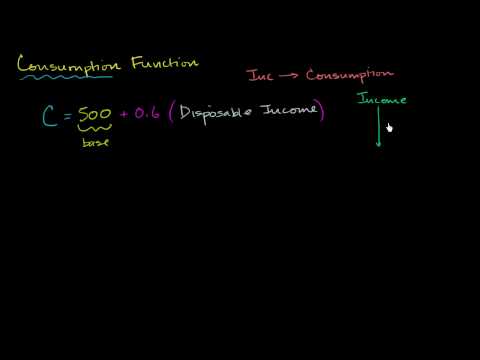 Consumption Function
Inc → Consumption
Income
C = 500 + 0.6 (Disposable Income)
base